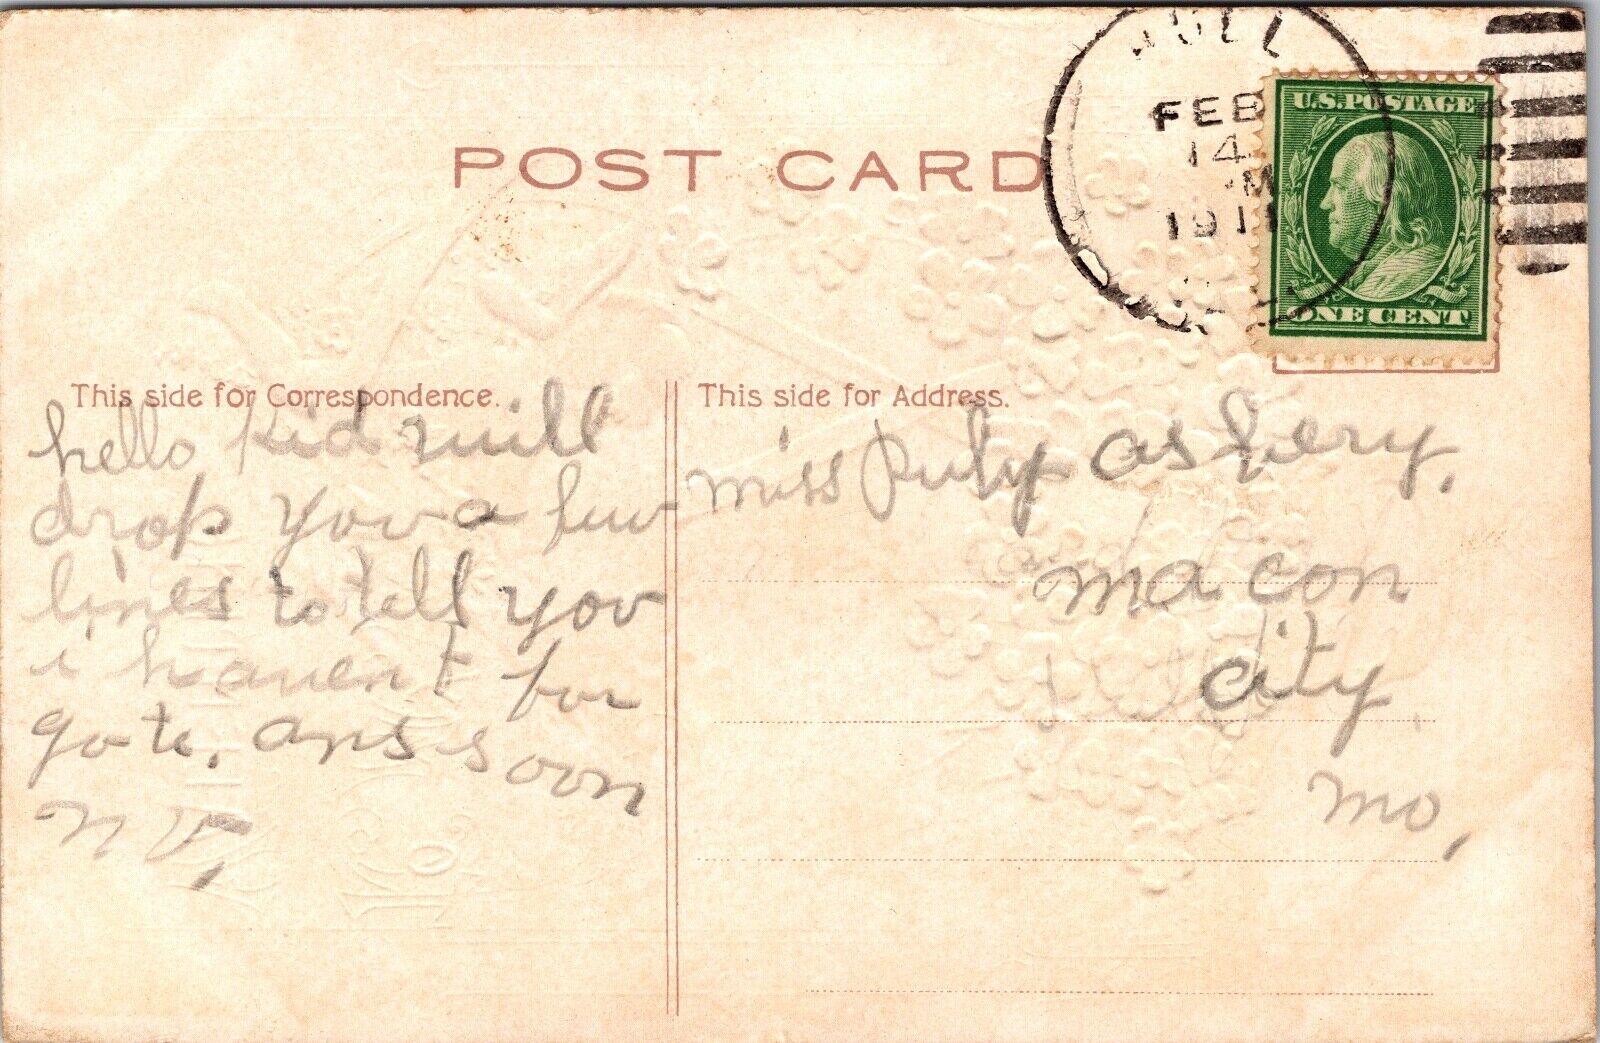 POST CARD
FEB
14
M
1911
U.S. POSTAGE
ONE CENT
This side for Correspondence.
hello Kid will
drop you a few
lines to tell you
i havent for
gote. ans soon
This side for Address.
miss Ruby asbery.
macon
city
mo,